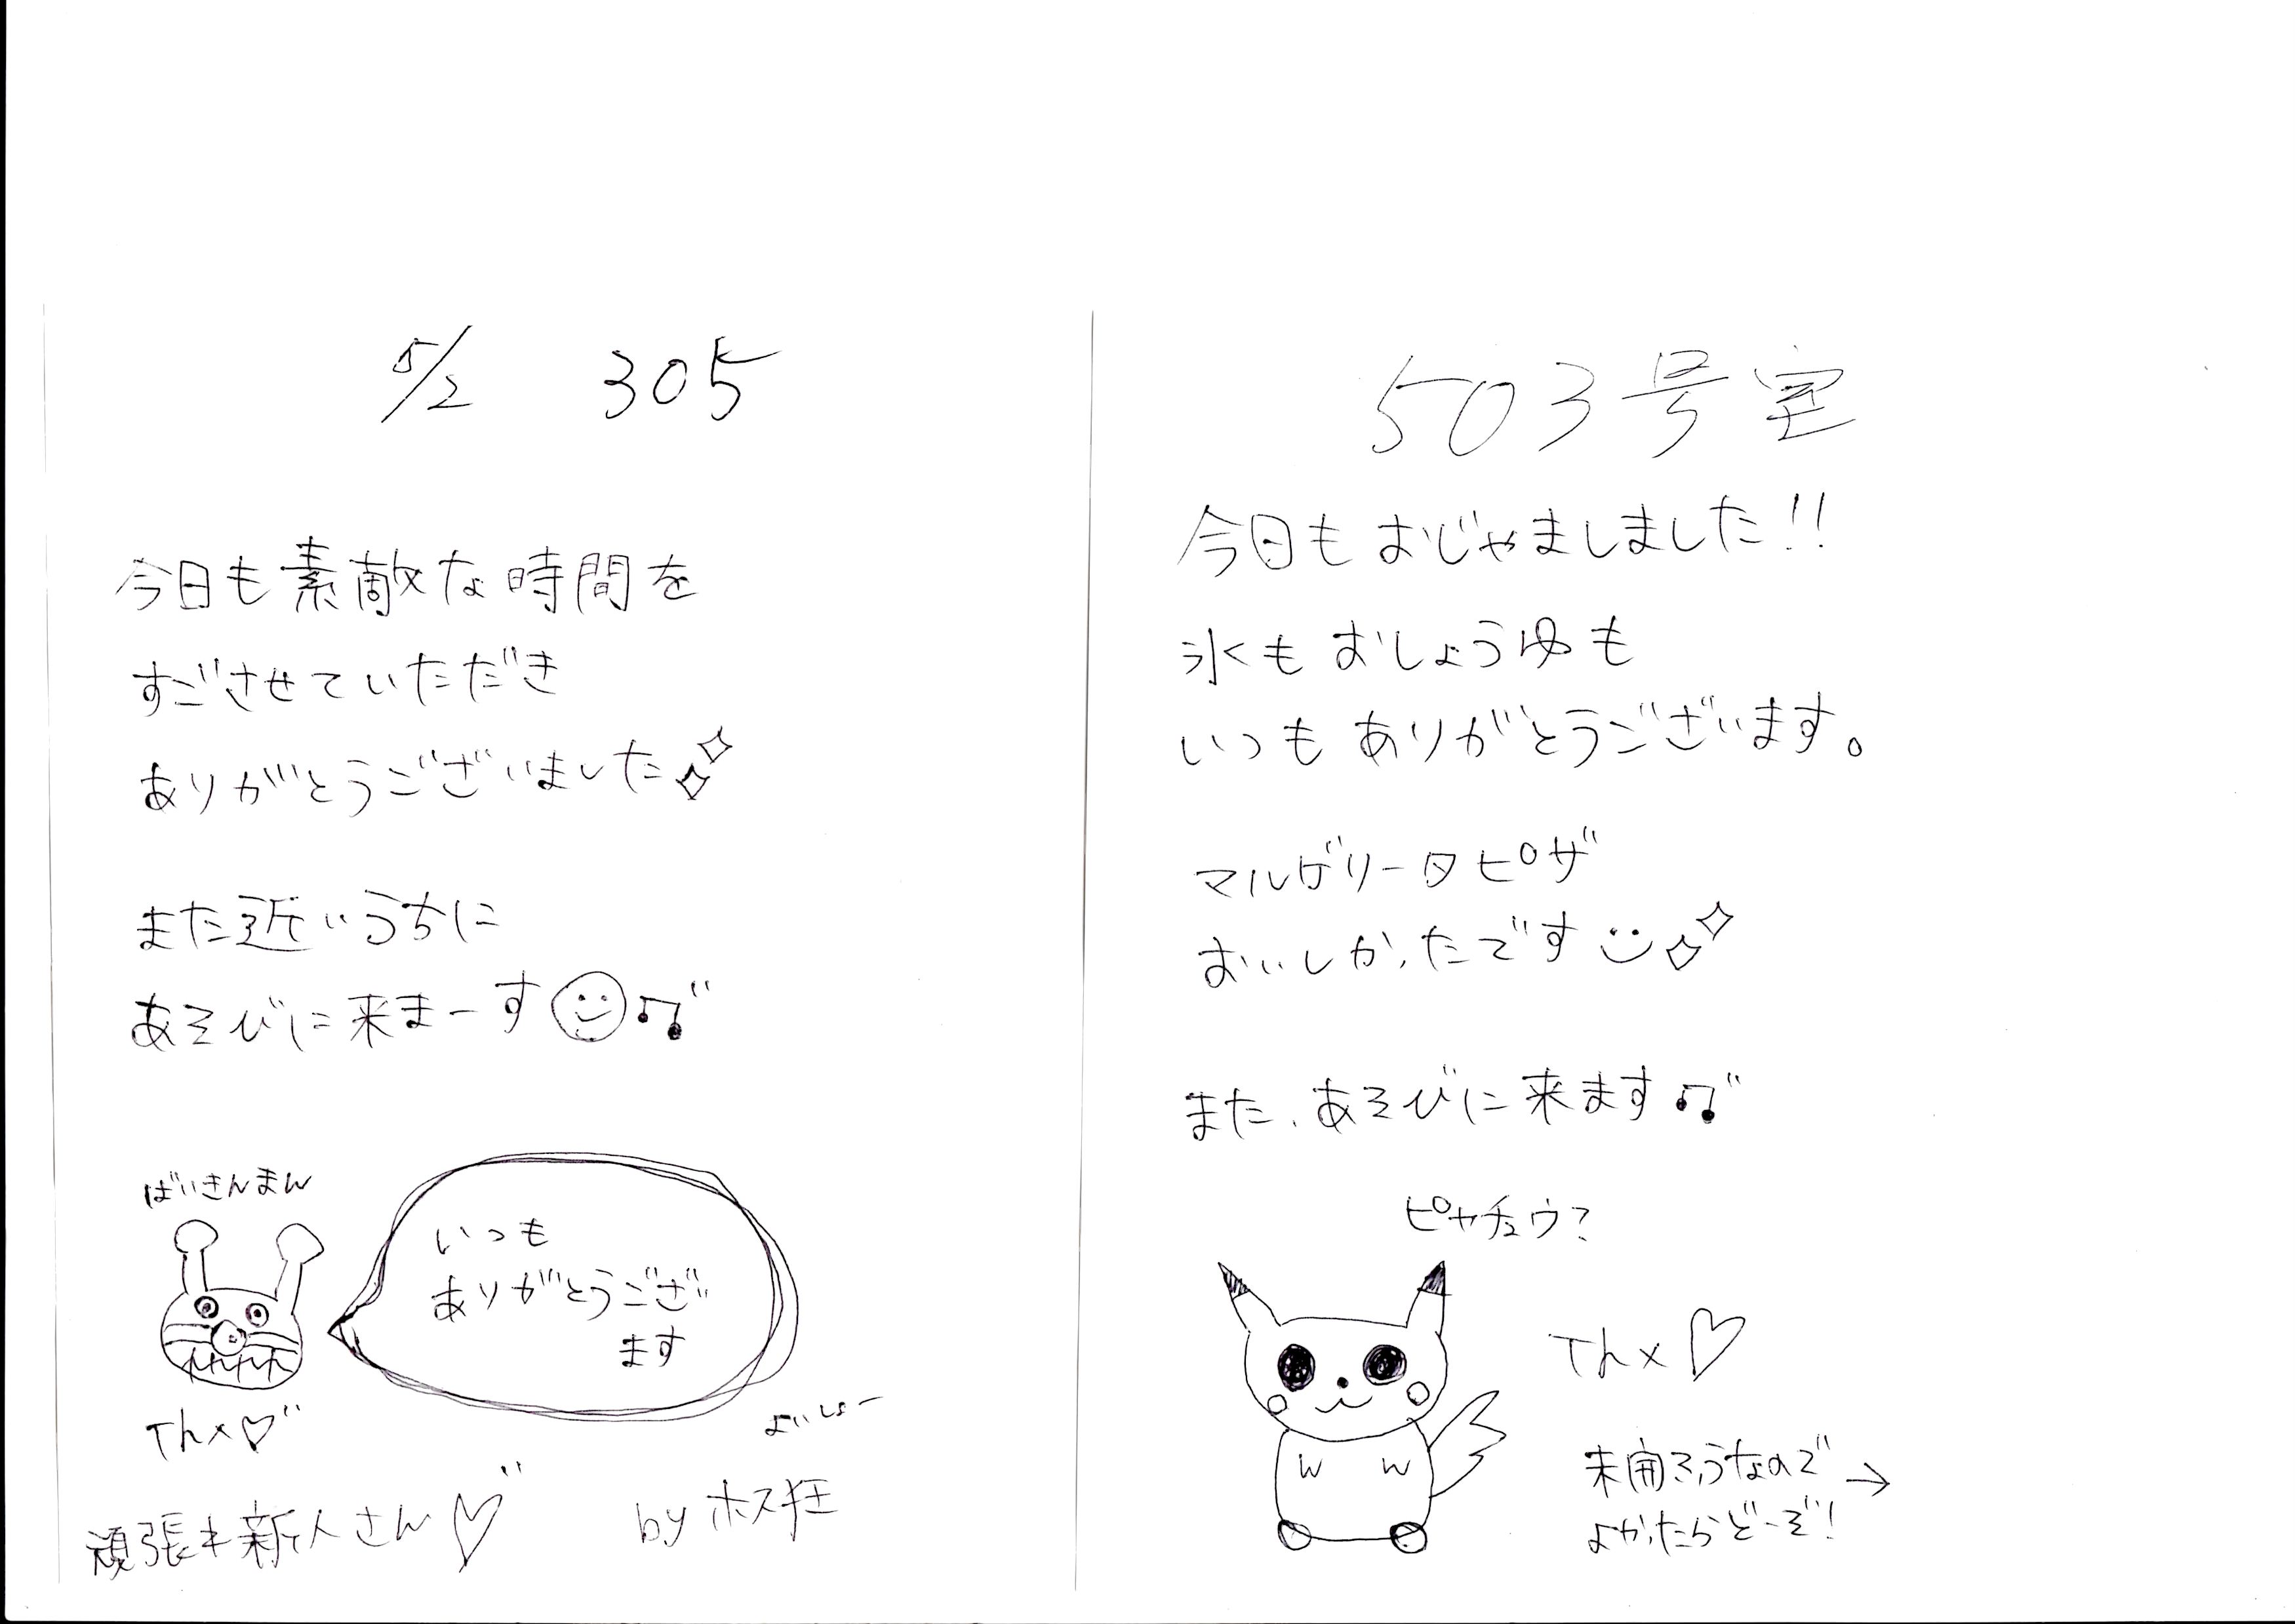 5/2 305
今日も素敵な時間を
すごさせていただき
ありがとうございました
また近いうちに
あそびに来まーす
ばいきんまん
いつも
ありがとうござ
ます
Thx♡
よいしょー
頑張れ新人さん♡
by ホス狂
503号室
今日もおじゃましました!!
氷もおしょうゆも
いつもありがとうございます。
マルゲリータピザ
おいしかったです
また、あそびに来ます
ピカチュウ?
Thx♡
w w
未開ふうなので→
よかったらどーぞ!